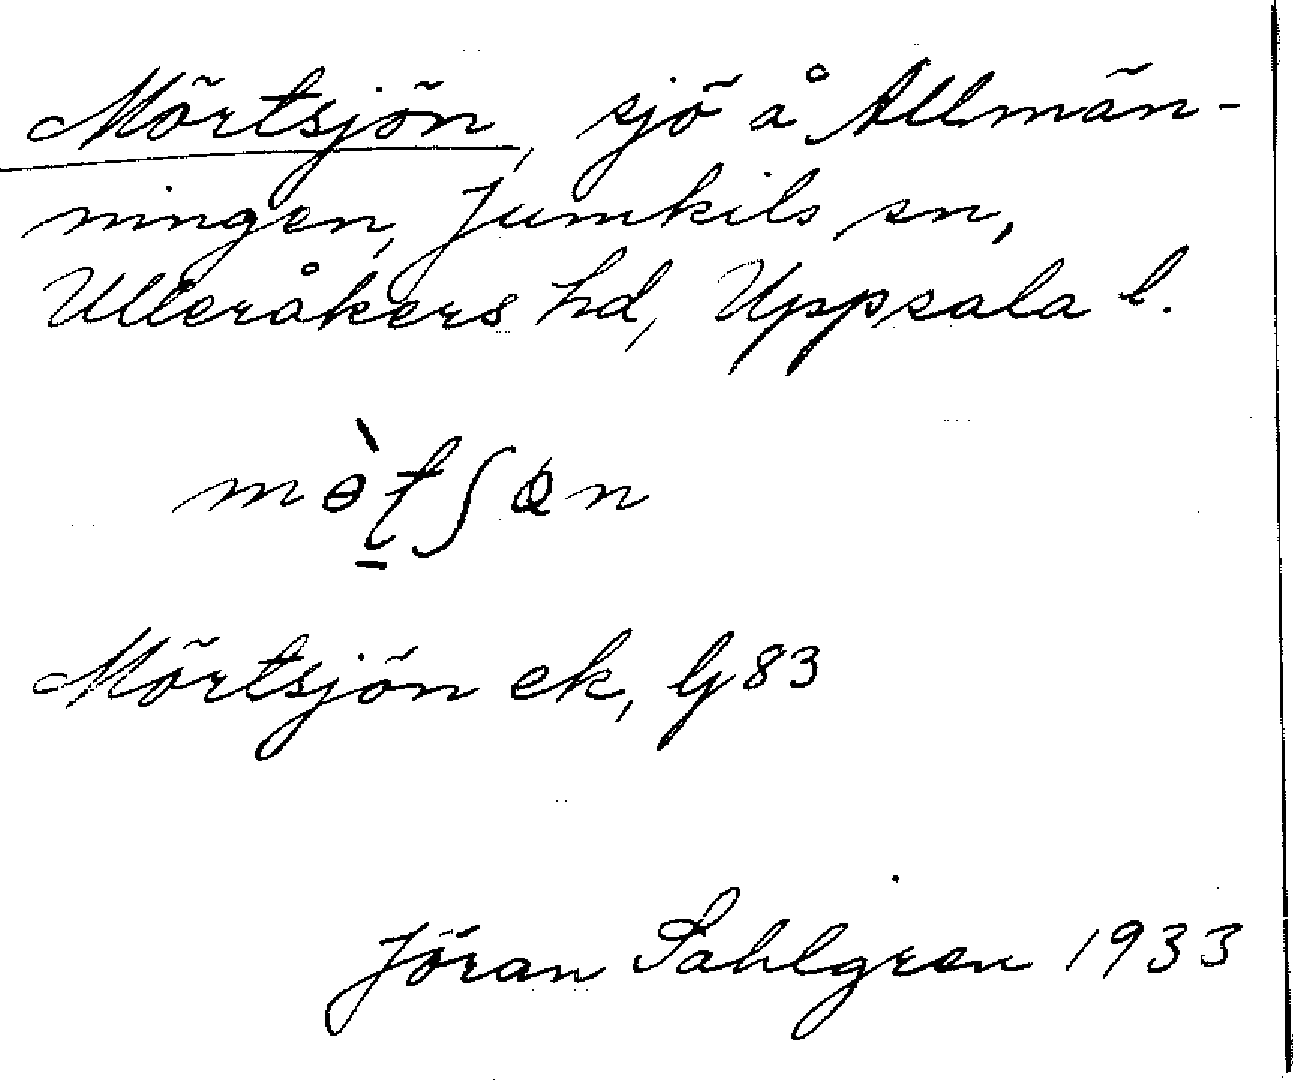 Mörtsjön, sjö å Allmän-
ningen, Jumkils sn,
Ulleråkers hd, Uppsala l.
Mörtsjön ek, bl 83
Jöran Sahlgren 1933